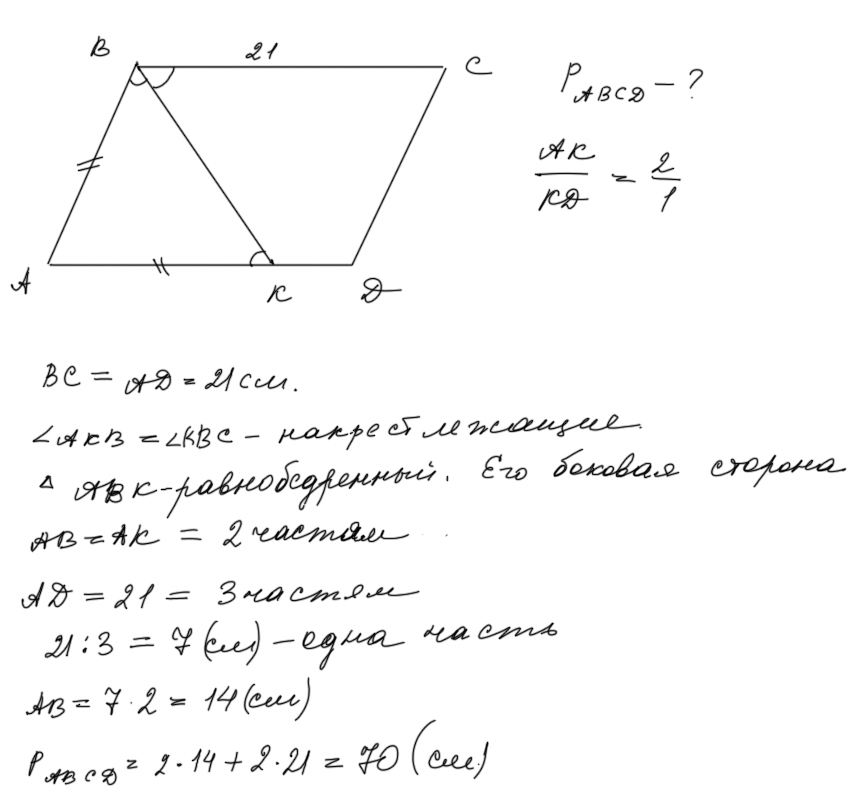 B
21
C
P ABCD - ?
AK/KD = 2/1
A
K
D
BC = AD = 21 см.
∠AKB = ∠KBC - накрест лежащие.
△ ABK - равнобедренный. Его боковая сторона
AB = AK = 2 частям
AD = 21 = 3 частям
21 : 3 = 7 (см) - одна часть
AB = 7 · 2 = 14 (см)
P ABCD = 2 · 14 + 2 · 21 = 70 (см)